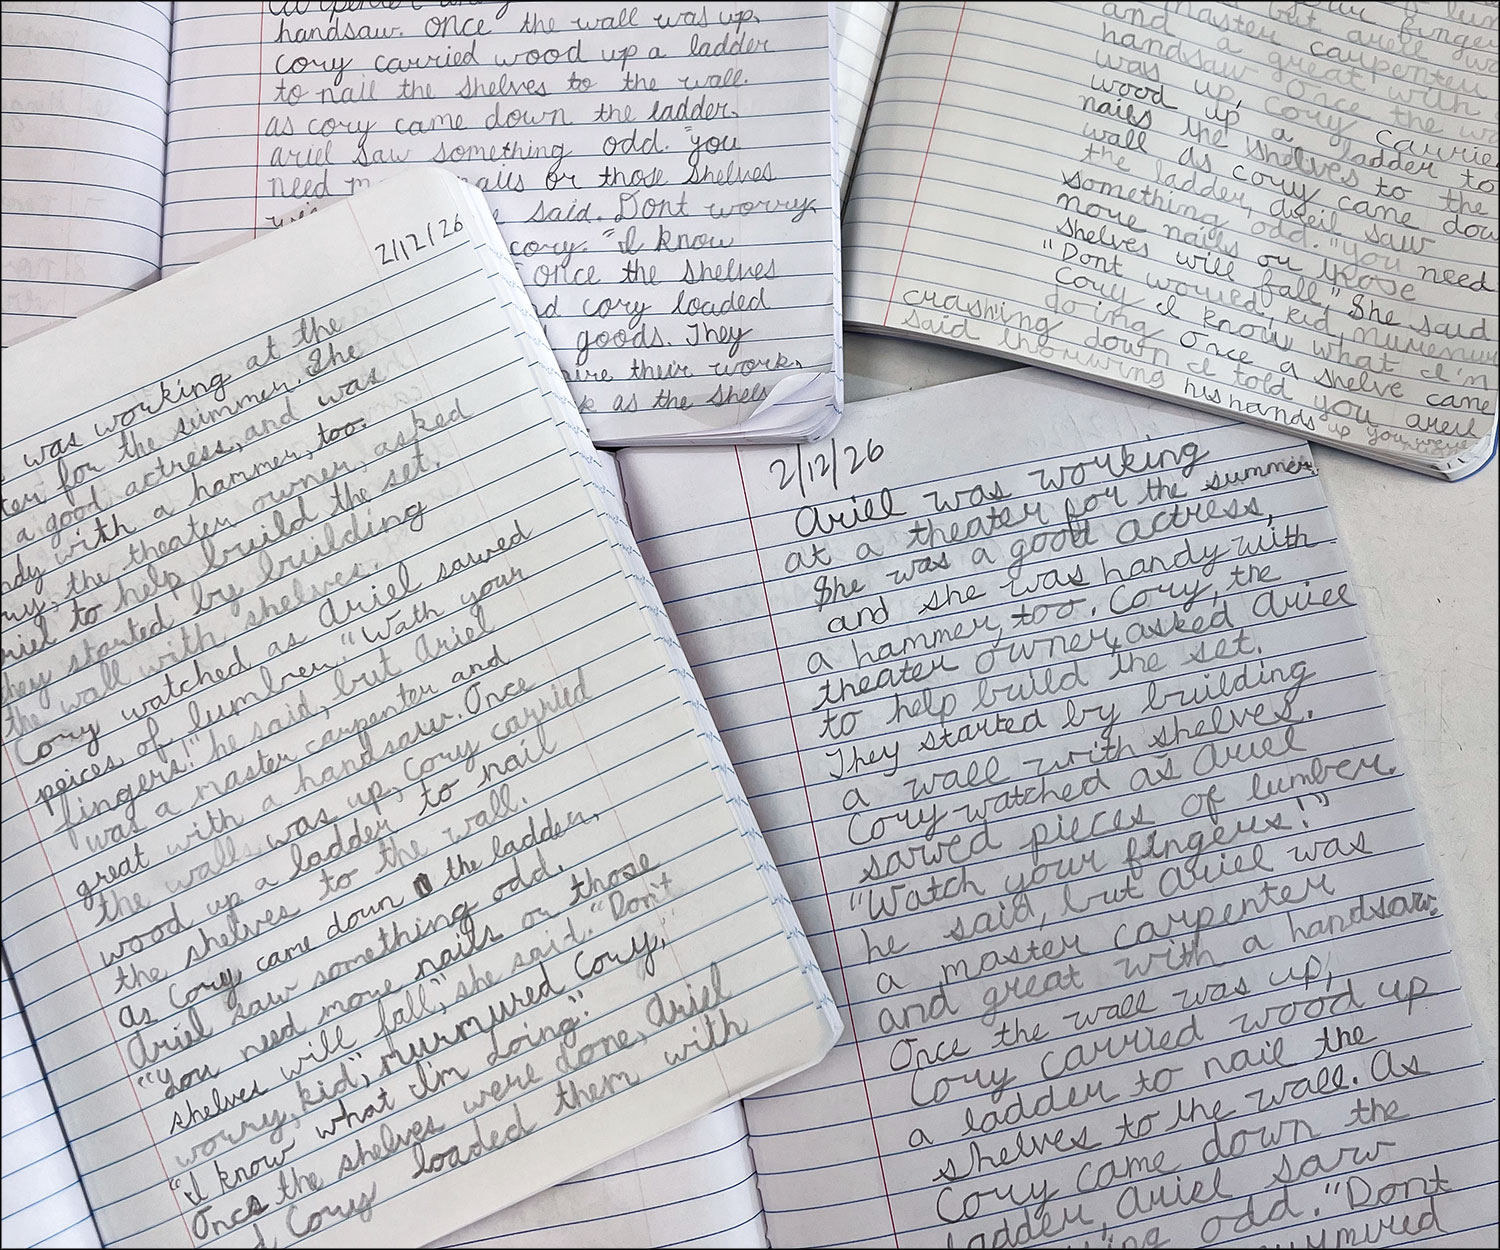 handsaw. Once the wall was up,
cory carried wood up a ladder
to nail the shelves to the wall.
as cory came down the ladder,
ariel saw something odd. "you
need nails or those shelves
said. Dont worry,
cory. "I know
once the shelves
cory loaded
goods. They
their work,
as the shels
and master carpenter
handsaw a great with
was up, Once the
wood up a Cory Carrie
nails the shelves ladder to
wall As cory came to the
the ladder, Aieil saw dow
something odd. "you
more nails or those need
shelves will fall," She said
"Dont worried, kid, muremur
Cory I know what I'm
doing Once a shelve came
crashing down I told you areil
said thorwing his hands up you were
2/12/26
was working at the
for the summer. She
a good actress, and was
with a hammer, too.
the theater owner, asked
to help build the set.
they started by building
the wall with shelves.
Cory watched as Ariel sawed
peices of lumbren. "Wath your
fingers!" he said, but Ariel
was a master carpenter and
great with a handsaw. Once
the walls was up, Cory carried
wood up a ladder to nail
the shelves to the wall.
As Cory came down the ladder,
Ariel saw something odd.
"You need more nails or those
shelves will fall," she said. "Don't
worry, kid", murmured Cory,"
"I know what I'm doing."
Once the shelves were done, Ariel
Cory loaded them with
2/12/26
Ariel was working
at a theater for the summer.
She was a good actress,
and she was handy with
a hammer, too. Cory, the
theater owner, asked Ariel
to help build the set.
They started by building
a wall with shelves.
Cory watched as Ariel
sawed pieces of lumber.
"Watch your fingers!"
he said, but Ariel was
a master carpenter
and great with a handsaw.
Once the wall was up,
Cory carried wood up
a ladder to nail the
shelves to the wall. As
Cory came down the
ladder, Ariel saw
odd. "Dont